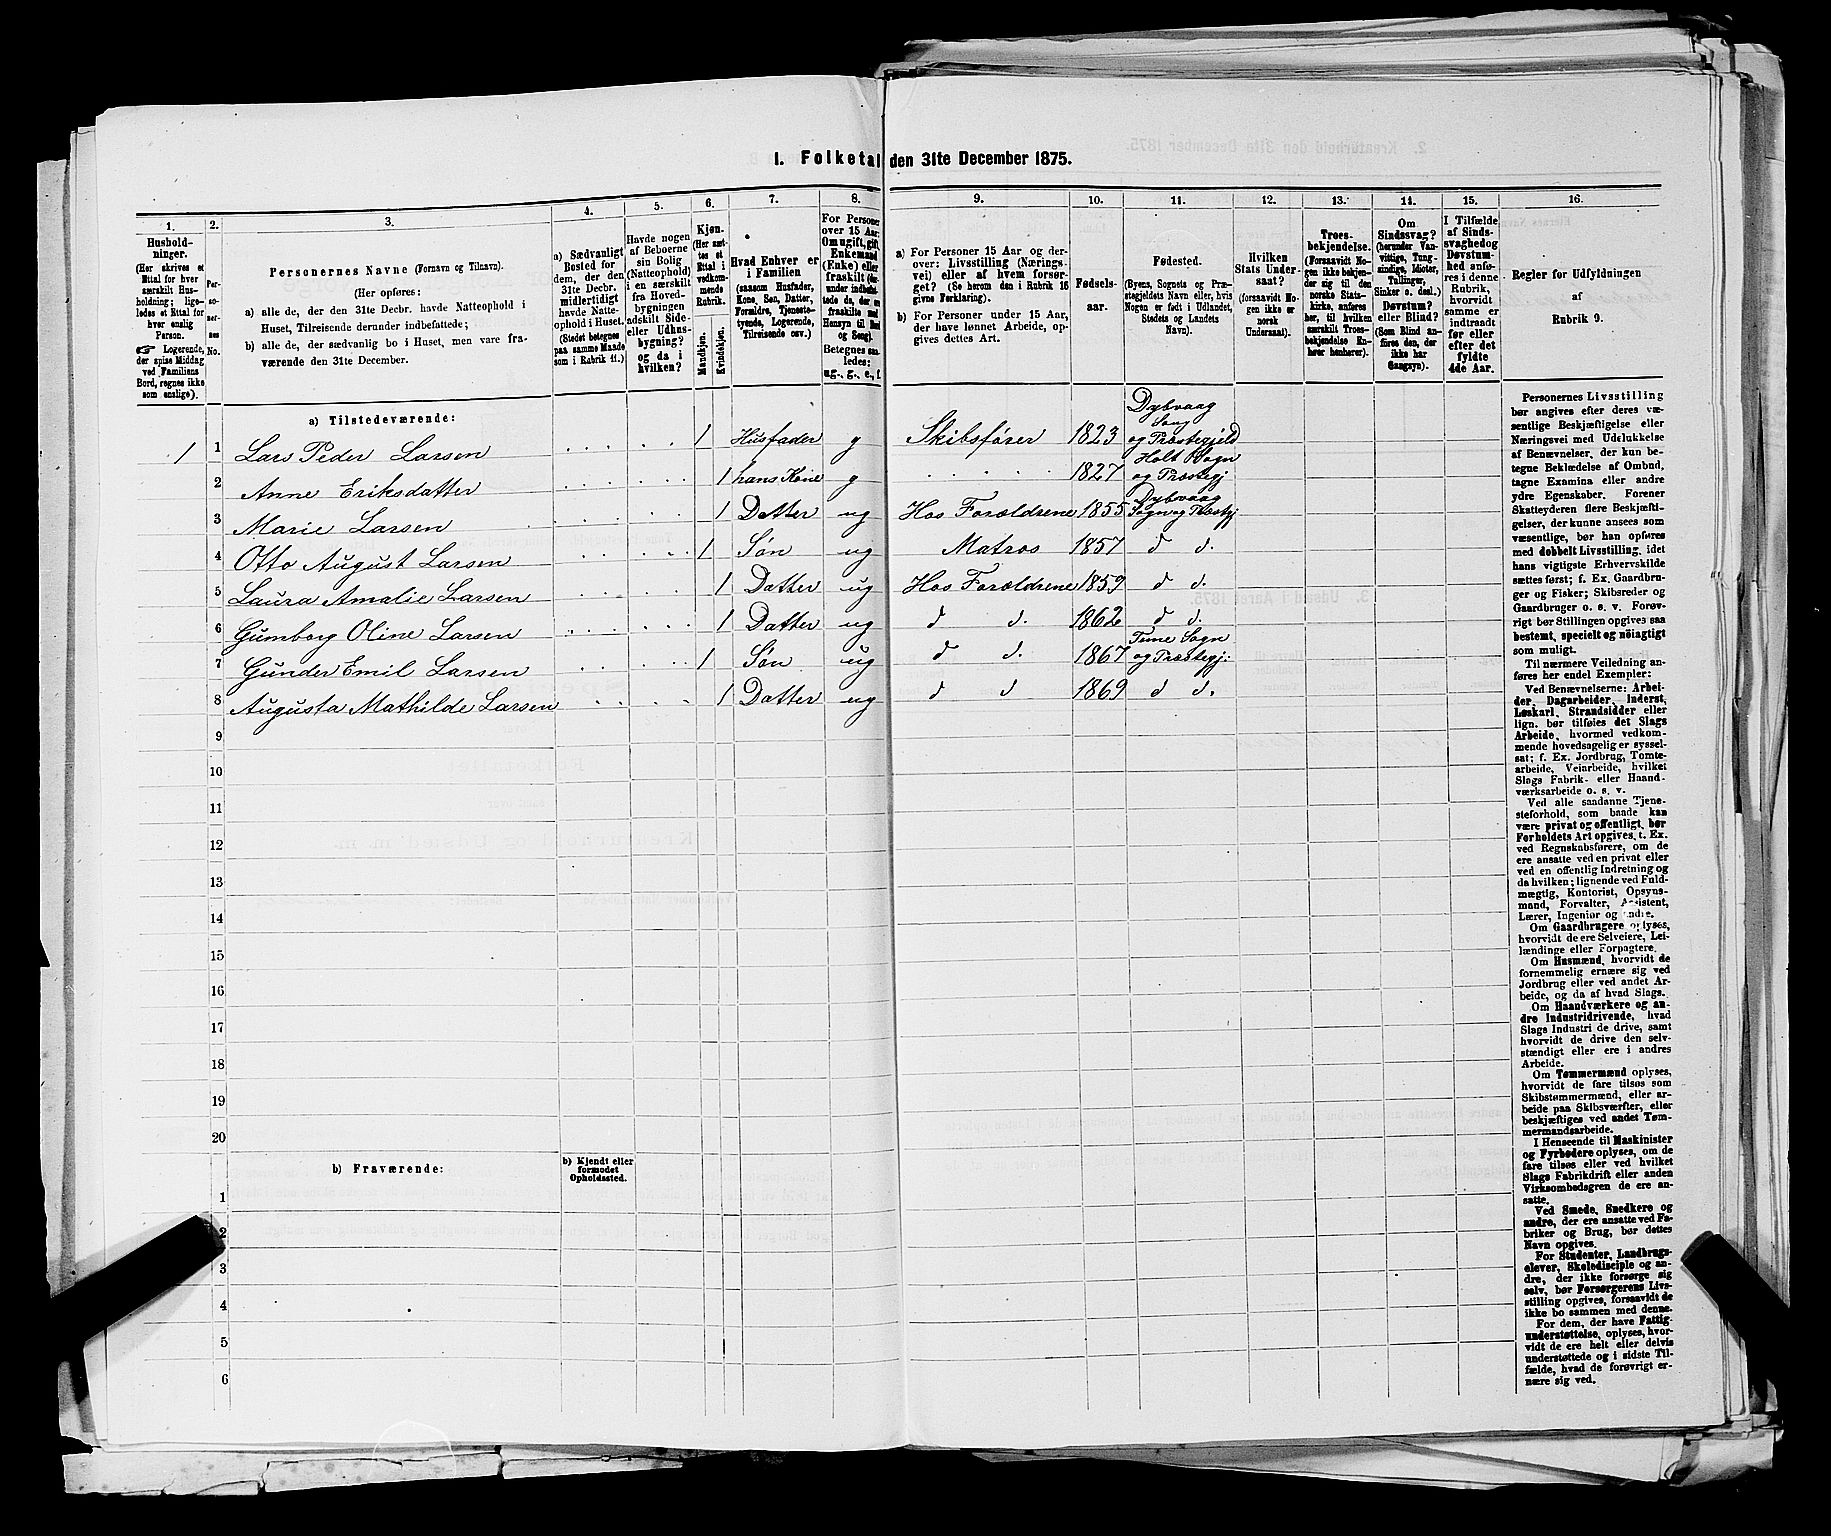 1. Folketal den 31te December 1875.
1.
Hushold-
ninger.
(Her skrives et
Ettal for hver
særskilt Hus-
holdning; lige-
ledes et Ettal for
hver enslig
Person.
☞ Logerende,
der spise Middag
ved Familiens
Bord, regnes ikke
som enslige).
2.
Per-
so-
ner-
nes
No.
3.
Personernes Navne (Fornavn og Tilnavn).
(Her opføres:
a) alle de, der den 31te Decbr. havde Natteophold i
Huset, Tilreisende derunder indbefattede;
b) alle de, der sædvanlig bo i Huset, men vare fra-
værende den 31te December.
4.
a) Sædvanligt
Bosted for
dem, der den
31te Decbr.
midlertidigt
havde Natte-
ophold i Huset.
(Stedet betegnes
paa samme Maade
som i Rubrik 11.)
5.
Havde nogen
af Beboerne
sin Bolig
(Natteophold)
i en særskilt
fra Hoved-
bygningen
adskilt Side-
eller Udhus-
bygning?
og da i
hvilken?
6.
Kjøn.
(Her sæt-
tes et
Ettal i
vedkom-
mende
Rubrik.
Mandkjøn.
Kvindekjøn.
7.
Hvad Enhver er
i Familien
(saasom Husfader,
Kone, Søn, Datter,
Forældre, Tjeneste-
tyende, Logerende,
Tilreisende osv.).
8.
For Personer
over 15 Aar:
Om ugift, gift,
Enkemand
(Enke) eller
fraskilt
Betegnes saa-
ledes:
ug., g., e., f.
9.
a) For Personer 15 Aar og der-
over: Livsstilling (Nærings-
vei) eller af hvem forsør-
get? (Se herom den i Rubrik 16
givne Forklaring).
b) For Personer under 15 Aar,
der have lønnet Arbeide, op-
gives dettes Art.
10.
Fødsels-
aar.
11.
Fødested.
(Byens, Sognets og Præ-
stegjeldets Navn eller, hvis
Nogen er født i Udlandet,
Stedets og Landets
Navn).
12.
Hvilken
Stats Under-
saat?
(forsaavidt No-
gen ikke er
norsk
Undersaat).
13.
Troes-
bekjendelse.
(Forsaavidt No-
gen ikke bekjen-
der sig til den
norske Stats-
kirke, anføres
her, til hvilken
særskilt Troes-
bekjendelse En-
hver henhører).
14.
Om
Sindssvag?
(herunder Van-
vittige, Tung-
sindige, Idioter,
Tullinger,
Sinker o. desl.)
Døvstum?
eller Blind?
(Som Blind an-
føres den, der
ikke har
Gangsyn).
15.
I Tilfælde
af Sinds-
svaghed og
Døvstum-
hed anfø-
res i denne
Rubrik,
hvorvidt
samme er
indtraadt
før eller
efter det
fyldte
4de Aar.
16.
Regler for Udfyldningen
af
Rubrik 9.
a) Tilstedeværende:
1 1 Lars Peder Larsen 1 Husfader g Skibsfører 1823 Dybvaag Sogn og Præstegjeld
2 Anne Eriksdatter 1 hans Kone g 1827 Holt Sogn og Præstegj
3 Marie Larsen 1 Datter ug Hos Forældrene 1855 Dybvaag Sogn og Præstgj
4 Otto August Larsen 1 Søn ug Matros 1857 d d.
5 Laura Amalie Larsen 1 Datter ug Hos Forældrene 1859 d d.
6 Gumborg Oline Larsen 1 Datter ug d d. 1862 d d.
7 Gunder Emil Larsen 1 Søn ug d d. 1867 Sogn og Præstegj:
8 Augusta Mathilde Larsen 1 Datter ug d d 1869 d d.
9
10
11
12
13
14
15
16
17
18
19
20
b) Fraværende:
b) Kjendt eller
formodet
Opholdssted.
1
2
3
4
5
6
Personernes Livsstilling
bør angives efter deres væ-
sentlige Beskjæftigelse eller
Næringsvei med Udelukkelse
af Benævnelser, der kun be-
tegne Beklædelse af Ombud,
tagne Examina eller andre
ydre Egenskaber. Forener
Skatteyderen flere Beskjæfti-
gelser, der kunne ansees som
væsentlige, bør han opføres
med dobbelt Livsstilling, idet
hans vigtigste Erhvervskilde
sættes først; f. Ex. Gaardbru-
ger og Fisker; Skibsreder og
Gaardbruger o. s. v. Forøv-
rigt bør Stillingen opgives saa
bestemt, specielt og nøiagtigt
som muligt.
Til nærmere Veiledning an-
føres her endel Exempler:
Ved Benævnelserne: Arbei-
der, Dagarbeider, Inderst,
Løskarl, Strandsidder eller
lign. bør tilføies det Slags
Arbeide, hvormed vedkom-
mende hovedsagelig er syssel-
sat; f. Ex. Jordbrug, Tomte-
arbeide, Veiarbeide, hvilket
Slags Fabrik- eller Haand-
værksarbeide o. s. v.
Ved alle saadanne Tjene-
steforhold, som baade kan
være privat og offentligt, bør
Forholdets Art opgives, t. Ex.
ved Regnskabsførere, om de
ere ansatte ved en privat eller
ved en offentlig Indretning og
da hvilken; lignende ved Fuld-
mægtig, Kontorist, Opsyns-
mand, Forvalter, Assistent,
Lærer, Ingeniør og andre.
Om Gaardbrugere oplyses,
hvorvidt de ere Selveiere, Lei-
lændinge eller Forpagtere.
Om Husmænd, hvorvidt de
fornemmelig ernære sig ved
Jordbrug eller ved andet Ar-
beide, og da af hvad Slags.
Om Haandværkere og an-
dre Industridrivende, hvad
Slags Industri de drive, samt
hvorvidt de drive den selv-
stændigt eller ere i andres
Arbeide.
Om Tømmermænd oplyses,
hvorvidt de fare tilsøs som
Skibstømmermænd, eller ar-
beide paa Skibsværfter, eller
beskjæftiges ved andet Tøm-
mermandsarbeide.
I Henseende til Maskinister
og Fyrbødere oplyses, om de
fare tilsøs eller ved hvilket
Slags Fabrikdrift eller anden
Virksombedsgren de ere an-
satte.
Ved Smede, Snedkere og
andre, der ere ansatte ved Fa-
briker og Brug, bør dettes
Navn opgives.
For Studenter, Landbrugs-
elever, Skoledisciple og an-
dre, der ikke forsørge sig
selv, bør Forsørgerens Livs-
stilling opgives, forsaavidt de
ikke bo sammen med denne.
For dem, der have Fattig-
understøttelse, oplyses, hvor-
vidt de ere helt eller delvis
understøttede og i sidste Til-
fælde, hvad de forøvrigt er-
nære sig ved.